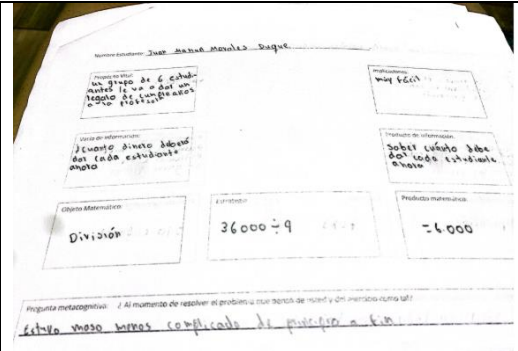 Nombre Estudiante: Juan Manuel Morales Duque
un grupo de 6 estudi
antes le va a dar un
regalo de cumpleaños
a la profesora
muy fácil
¿cuanto dinero deberá
dar cada estudiante
ahora
Producto de información:
Saber cuánto debe
dar cada estudiante
ahora
Objeto Matemático:
División
Estrategia:
36000÷9
Producto matemático:
=6.000
Pregunta metacognitiva: ¿Al momento de resolver el problema que
Estuvo maso menos complicado de principio a fin